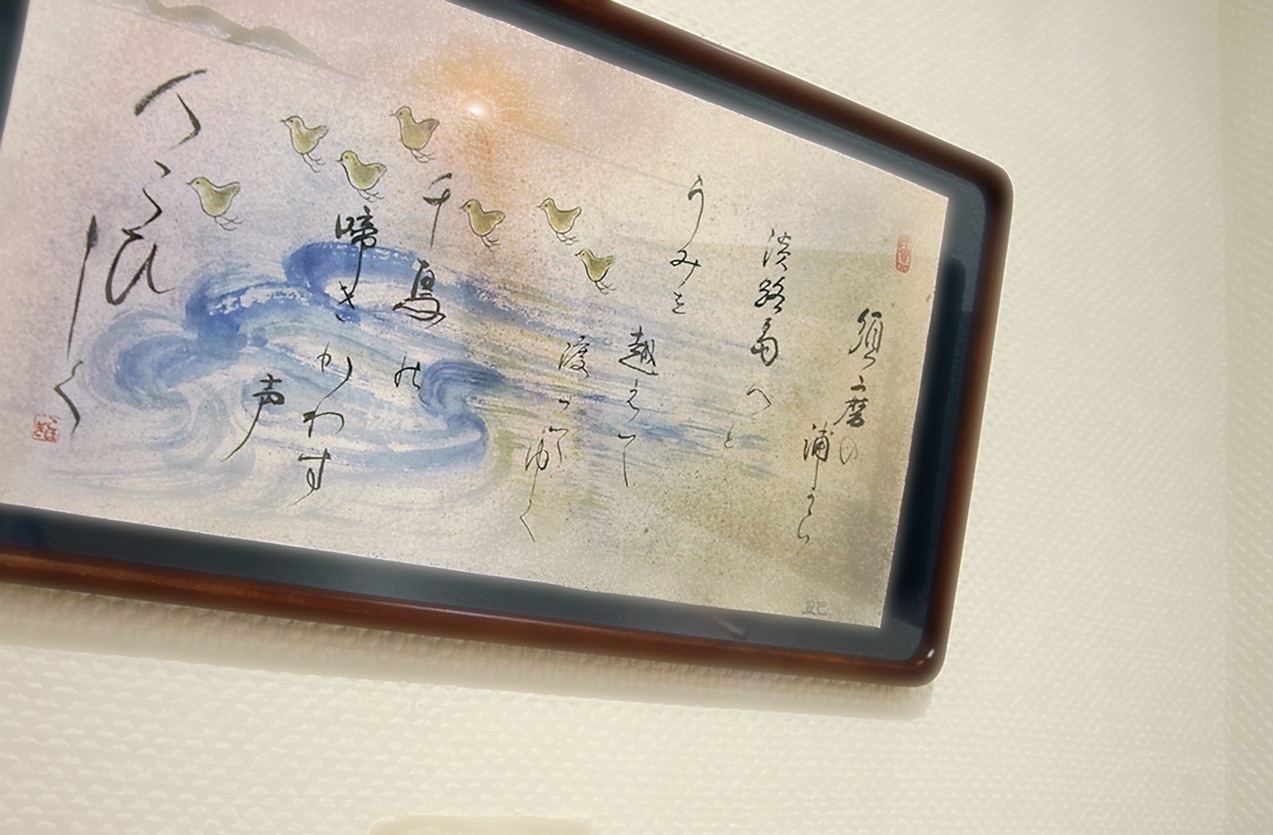 須磨の
浦から
淡路島へと
うみを
越えて
渡
ゆく
千鳥の
啼き
かわす
声